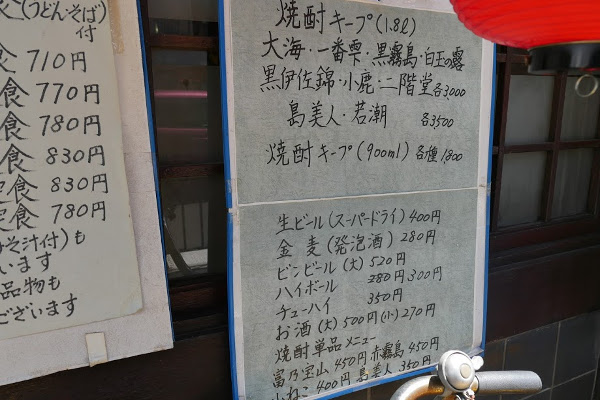 (うどん・そば)
付
食 710円
食 770円
食 780円
食 830円
定食 830円
定食 780円
みそ汁付)も
います
品物も
ございます
焼酎キープ(1.8ℓ)
大海・一番雫・黒霧島・白玉の露
黒伊佐錦・小鹿・二階堂各3,000
島美人・若潮 各3500
焼酎キープ(900ml) 各種1800
生ビール(スーパードライ)400円
金麦(発泡酒) 280円
ビンビール(大) 520円
ハイボール 280円 300円
チューハイ 350円
お酒(大)500円(小)270円
焼酎単品メニュー
富乃宝山 450円 赤霧島 450円
山ねこ 400円 島美人 350円